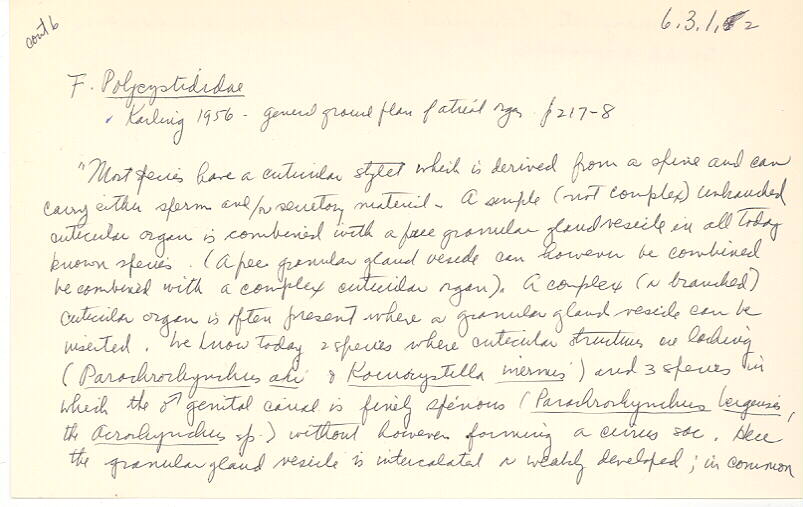 cont b
6.3.1, 2
F. Polycystididae
Karling 1956 - general ground plan of atrial orgs. p217-8
"Most species have a cuticular stylet which is derived from a spine and can
carry either sperm and/or secretory material - A simple (not complex) unbranched
cuticular organ is combined with a free granular gland vesicle in all today
known species. (A free granular gland vesicle can however be combined
be combined with a complex cuticular organ). A complex (or branched)
cuticular organ is often present where a granular gland vesicle can be
inserted. We know today 2 species where cuticular structures are lacking
(Parachrorhynchus axi & Koinocystella inermis) and 3 species in
which the ♂ genital canal is finely spinous (Parachrorhynchus bergensis,
the Acrorhynchus sp.) without however forming a cirrus sac. Here
the granular gland vesicle is intercalated or weakly developed; in common